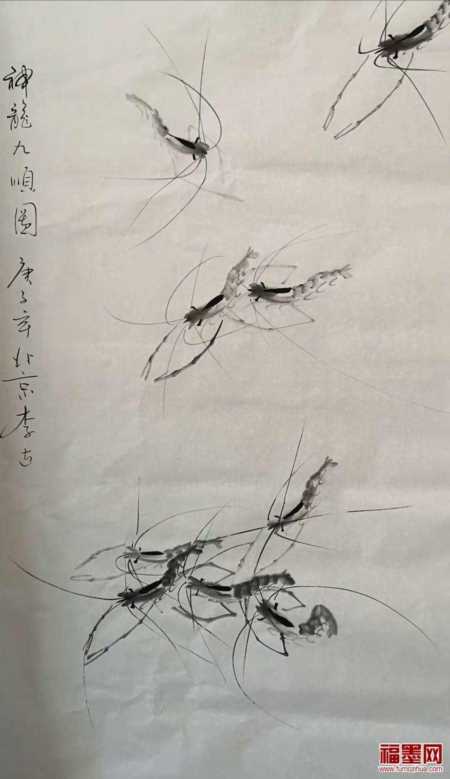 神龍九順圖
庚子年北京李吉
福墨网
www.fumoshuhua.com